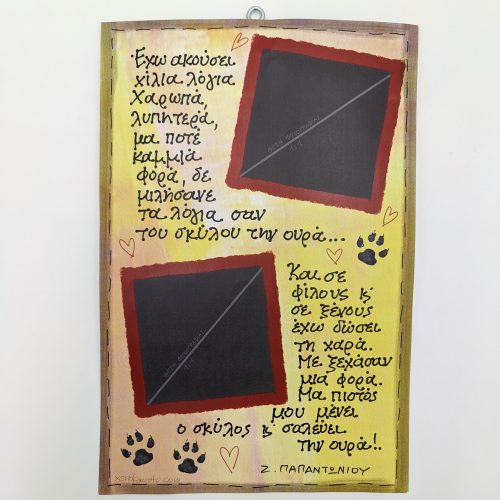 Έχω ακούσει
χίλια λόγια
Χαρωπά,
λυπητερά,
μα ποτέ
καμμιά
φορά, δε
μιλήσανε
τα λόγια σαν
του σκύλου την ουρά...
Και σε
φίλους κ'
σε ξένους
έχω δώσει
τη χαρά.
Με ξεχάσαν
μια φορά.
Μα πιστός
μου μένει
ο σκύλος κ' σαλεύει
την ουρά!.
Ζ. ΠΑΠΑΝΤΩΝΙΟΥ